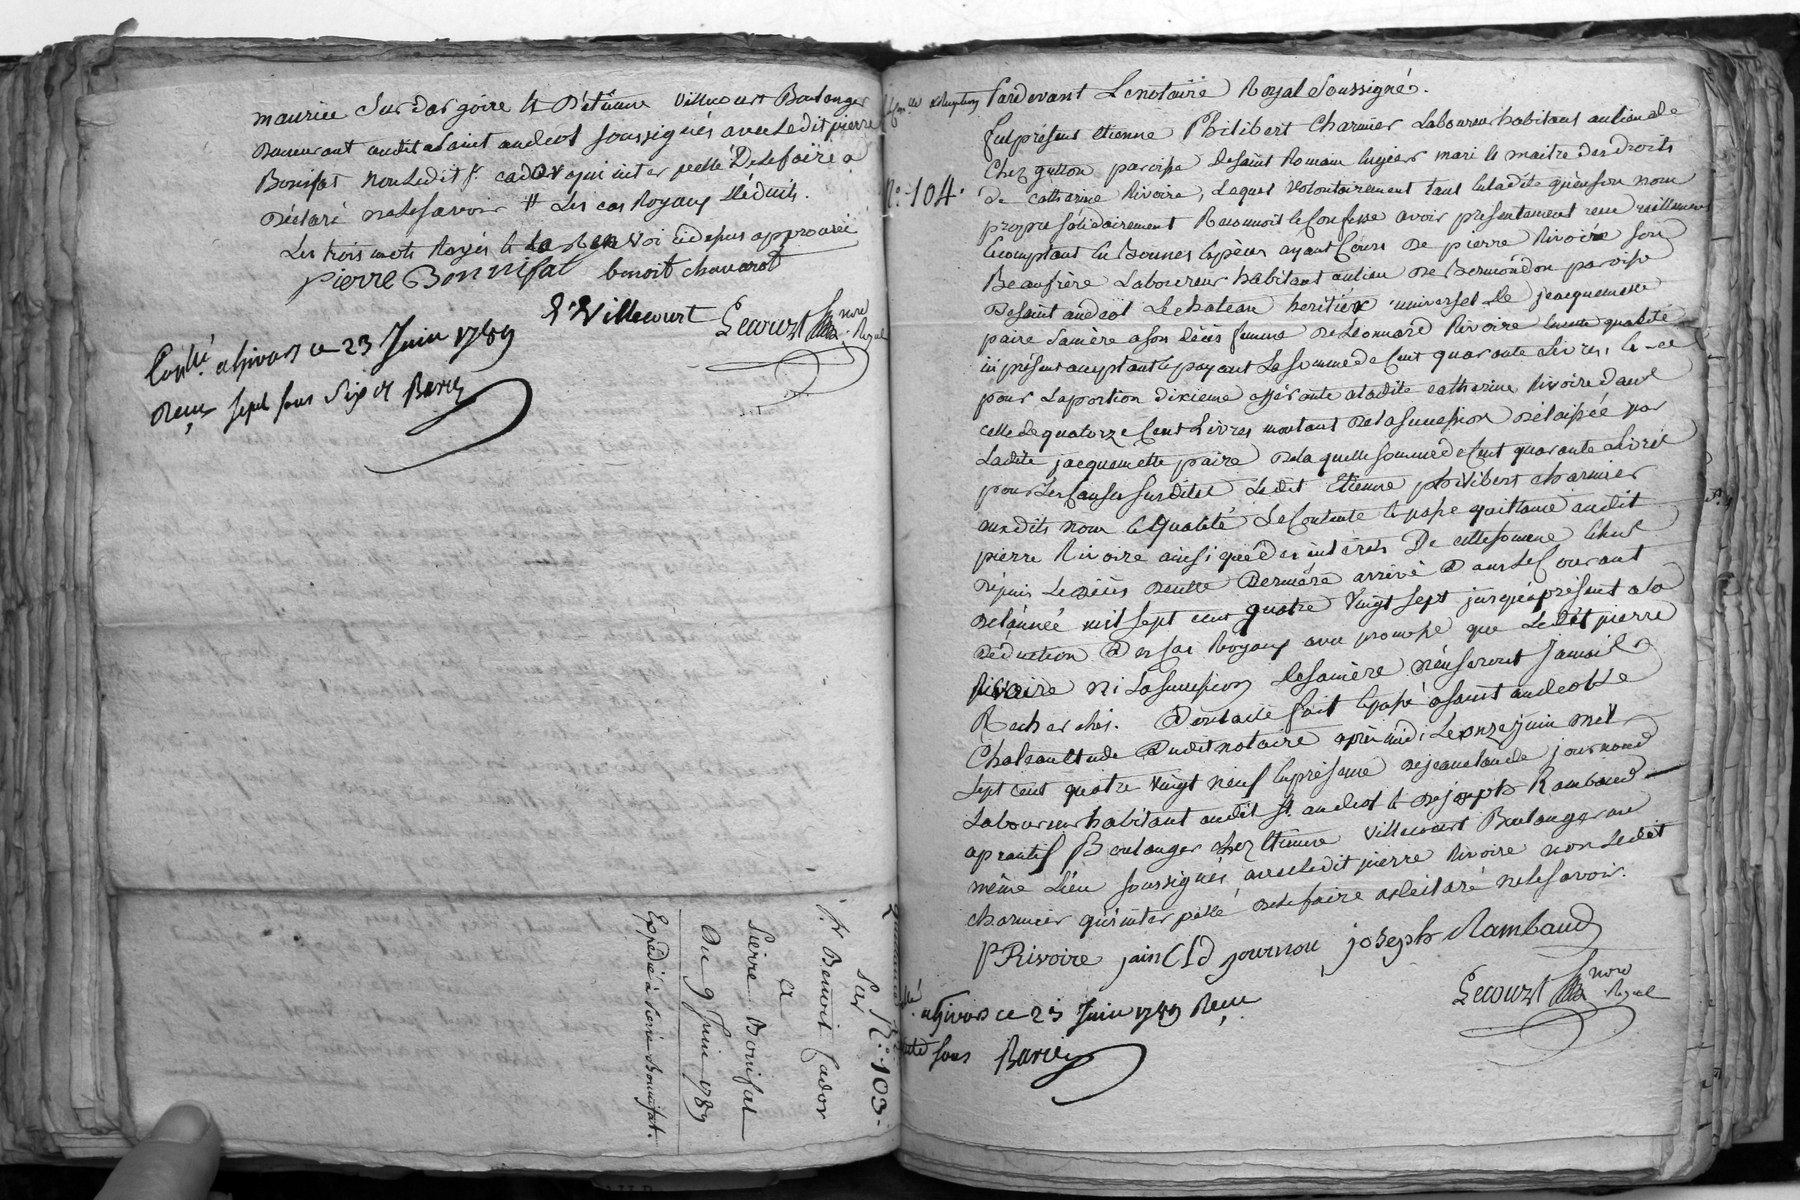 maurice sur dargoire & D'étienne Villecourt Boulanger
Demeurant audit a Saint andeol soussignés avec Ledit pierre
Bonifat non Ledit Sr. cador qui interpellé De le faire a
Déclaré ne le savoir # Les cas Royaux Déduits.
Les trois mots Rayés & le Renvoi cidessus approuvé
pierre Bonnifat benoit chavarot
E Villecourt Lecourt
nore Royal
Conllé. a Givors ce 23 Juin 1789
Reçu sept sous Six d Barie
No. 103.
Sr Benoit Cador
a
Pierre Bonifat
Du 9 Juin 1789
Expédié à Pierre Bonnifat.
No. 104.
Pardevant Le notaire Royal Soussigné.
fut présent Etienne Philibert Charmier Laboureur habitant au lieu de
Chez gutton paroisse de saint Romain en gier mari & maitre des droits
de catherine Rivoire, Lequel volontairement tant de ladite qu'en son nom
propre solidairement Reconnoit & Confesse avoir presentement reçu réellement
comptant en Bonnes Espèces ayant Cours de pierre Rivoire son
Beaufrère Laboureur habitant au lieu de Bermondon paroisse
de saint andeol Le chateau heritier universel de jacquemette
paire Sa mère a son décès femme de Leonard Rivoire en cette qualité
ici présent acceptant & payant La somme de Cent quarante Livres,
pour La portion dixieme afférante a ladite catherine Rivoire dans
celle de quatorze Cent Livres montant de la succession Délaissée par
Ladite jacquemette paire de la quelle somme de Cent quarante Livres
pour Les causes susdites Ledit Etienne philibert charmier
auxdits nom & qualité Se Contente & passe quittance audit
pierre Rivoire ainsi que des intérêts De cette somme
Depuis Le décès de cette Dernière arrivé Dans Le Courant
de l'année mil sept cent quatre Vingt sept jusqu'a présent a la
déduction des cas Royaux avec promesse que Ledit pierre
Rivoire ni La succession de sa mère n'en seront Jamais
Recherchés. Dont acte fait & passé a saint andeol Le
Chateau Etude Dudit notaire après midi, Le onze juin mil
sept cent quatre vingt neuf En présence de jean claude journoud
Laboureur habitant audit St. andeol & de joseph Rambaud
aprantif Boulanger chez Etienne Villecourt Boulanger au
même Lieu soussignés avec Ledit pierre Rivoire non Ledit
charmier qui interpellé de le faire a déclaré ne le savoir.
P Rivoire jan Cld journou joseph Rambaud
Lecourt
nore Royal
a Givors ce 23 Juin 1789 Reçu
sous Barie